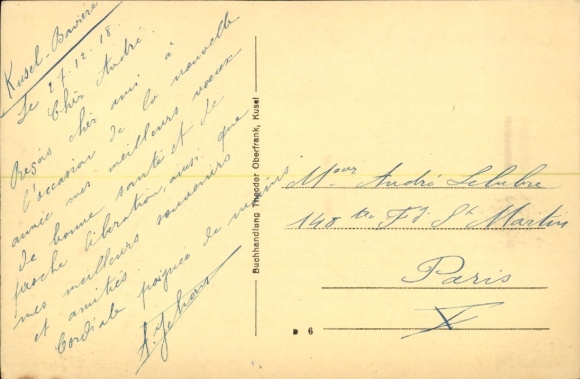 Kusel-Bavière
Le 27.12.18
Cher André.
Reçois cher ami à
l'occasion de la nouvelle
année mes meilleurs vœux
de bonne santé et de
proche libération, ainsi que
mes meilleurs souvenirs
et amitiés
Cordiale poignée de mains
Buchhandlung Theodor Oberfrank, Kusel
André Lelubre
148 Fg St Martin
Paris
X
6